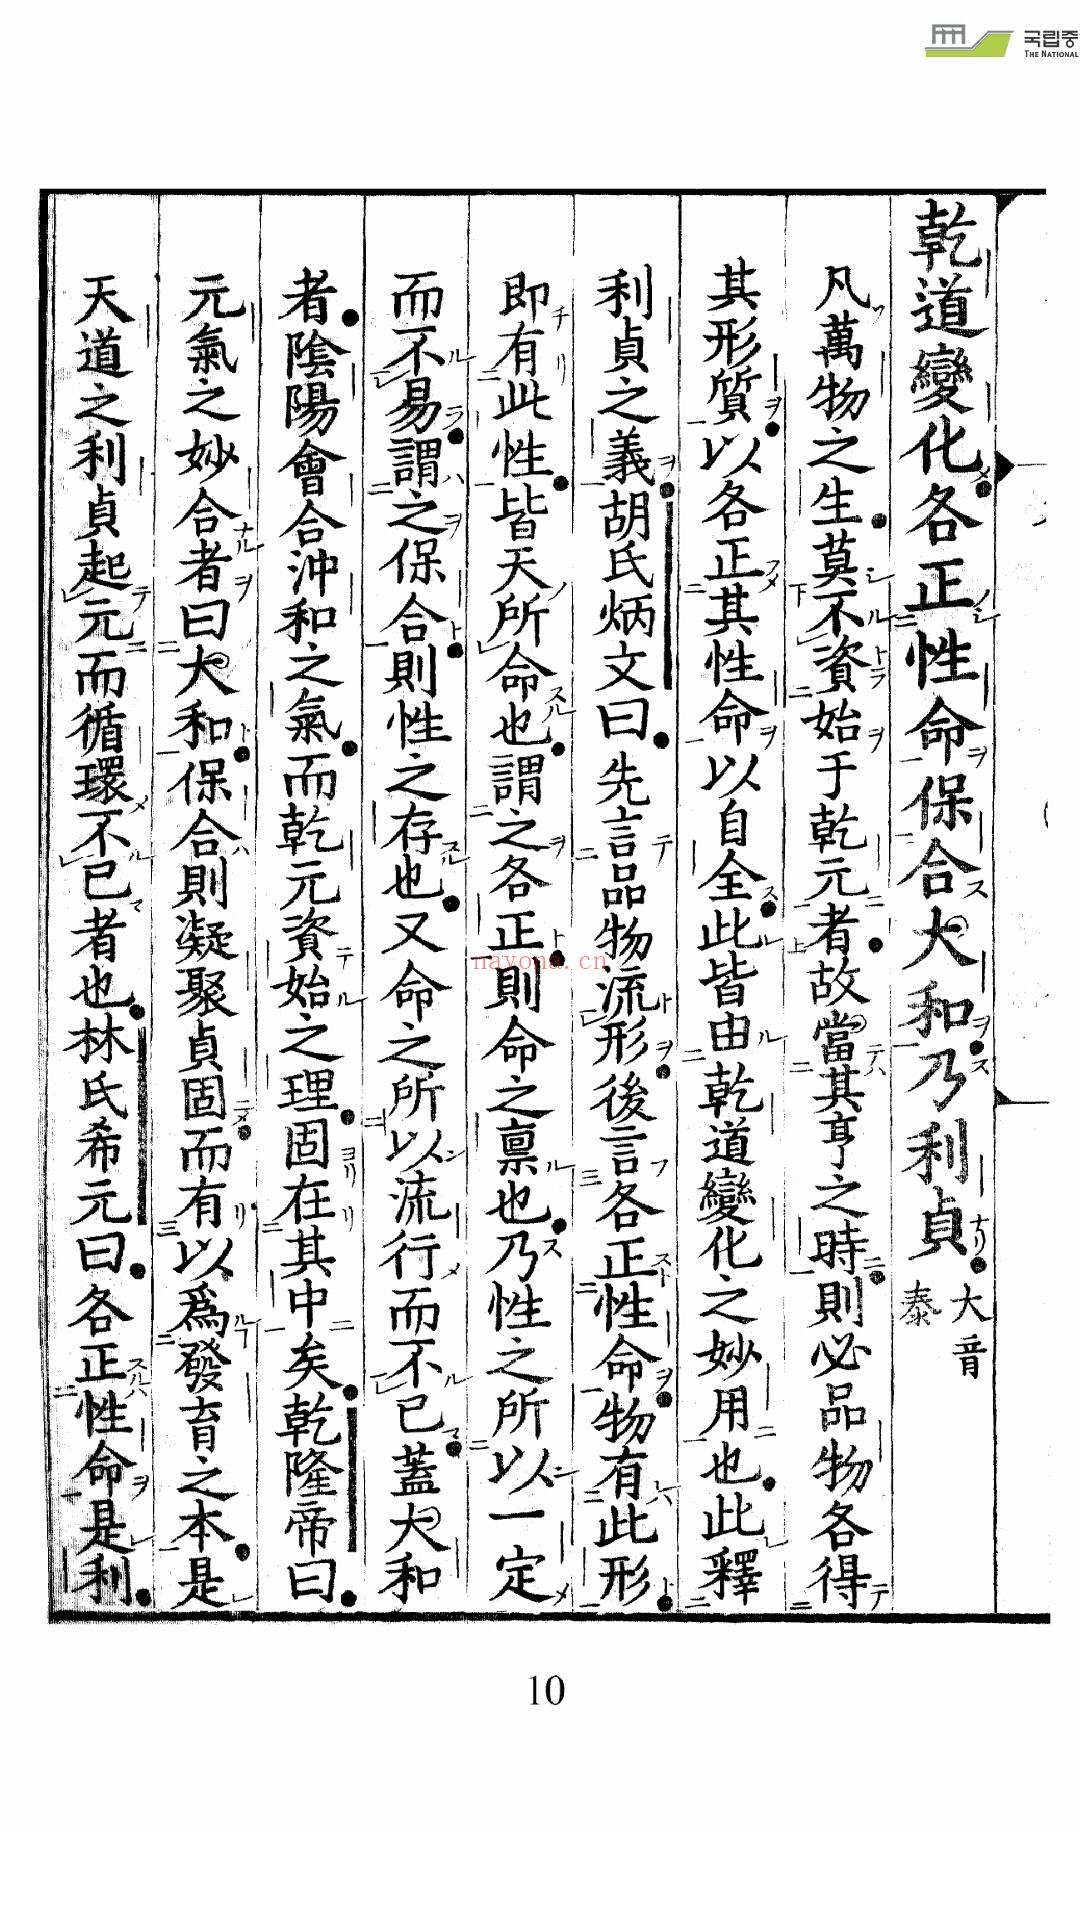 국립중
THE NATIONAL
乾道變化各正性命保合大和乃利貞大音泰
凡萬物之生莫不資始于乾元者故當其亨之時則必品物各得
其形質以各正其性命以自全此皆由乾道變化之妙用也此釋
利貞之義胡氏炳文曰先言品物流形後言各正性命物有此形
即有此性皆天所命也謂之各正則命之禀也乃性之所以一定
而不易謂之保合則性之存也又命之所以流行而不已蓋大和
者陰陽會合沖和之氣而乾元資始之理固在其中矣乾隆帝曰
元氣之妙合者曰大和保合則凝聚貞固而有以爲發育之本是
天道之利貞起元而循環不已者也林氏希元曰各正性命是利
nayona.cn
10